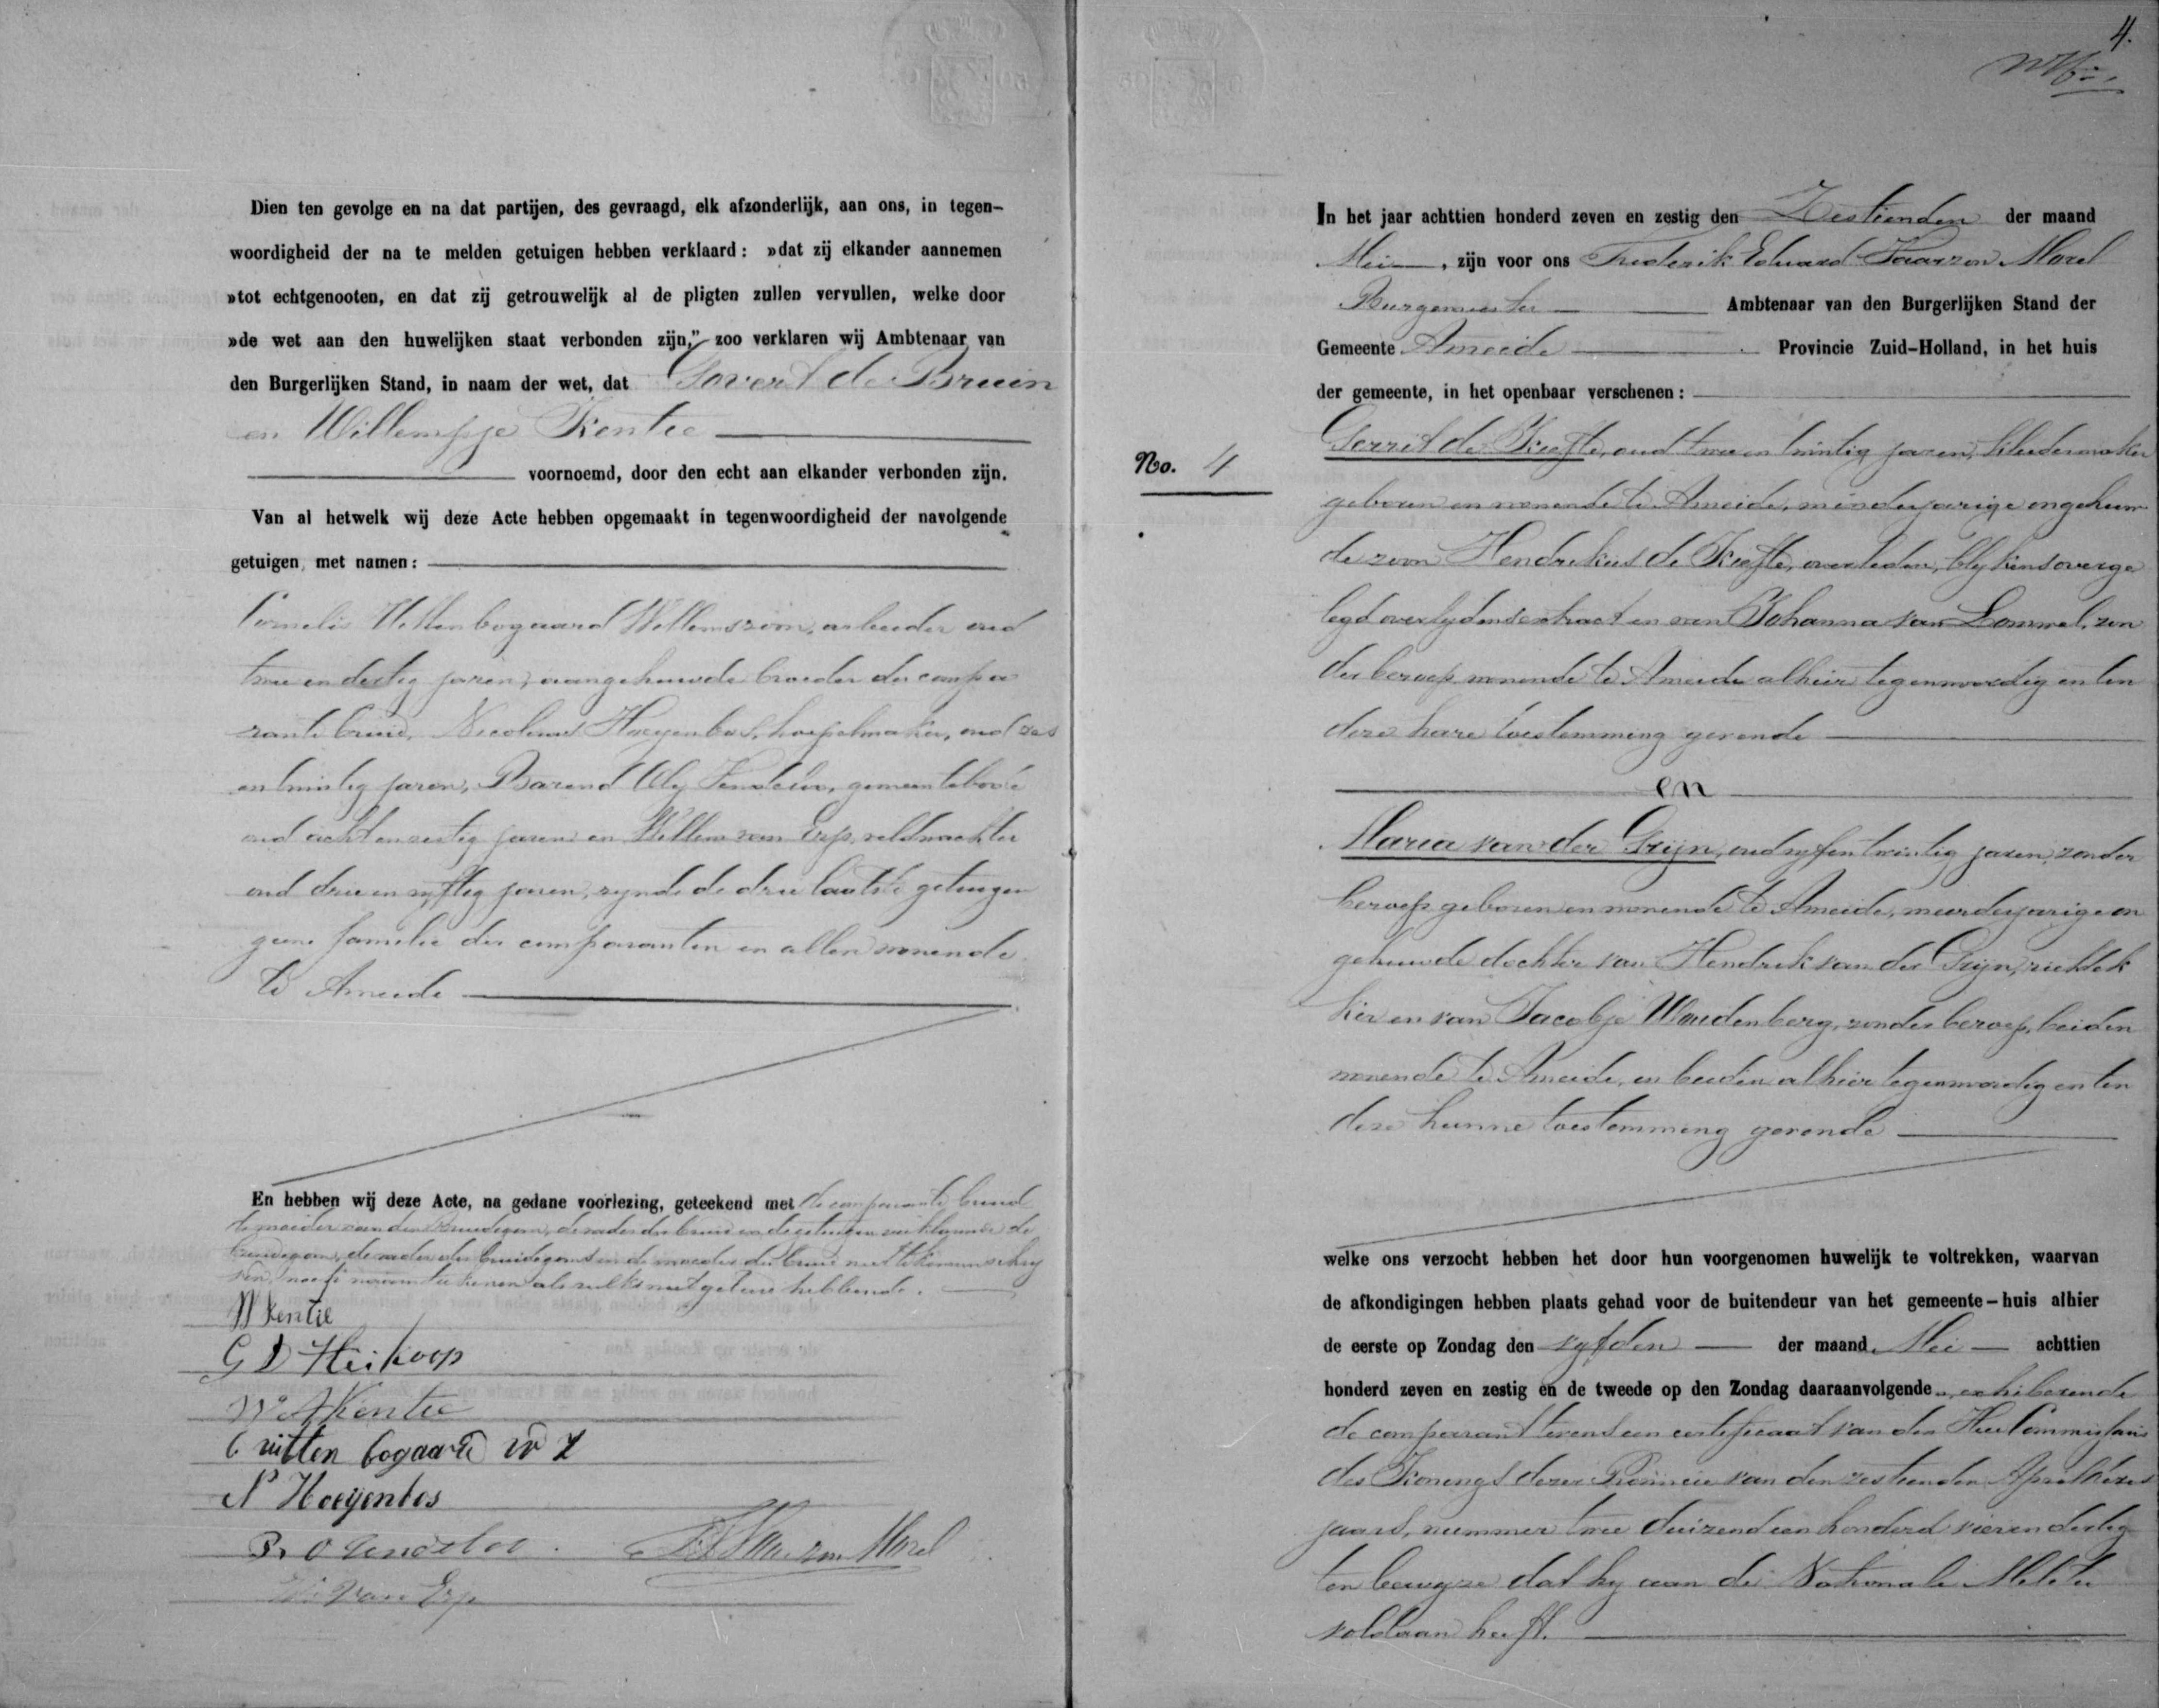 Dien ten gevolge en na dat partijen, des gevraagd, elk afzonderlijk, aan ons, in tegen-
woordigheid der na te melden getuigen hebben verklaard: »dat zij elkander aannemen
»tot echtgenooten, en dat zij getrouwelijk al de pligten zullen vervullen, welke door
»de wet aan den huwelijken staat verbonden zijn," zoo verklaren wij Ambtenaar van
den Burgerlijken Stand, in naam der wet, dat Govert de Bruin
en Willempje Kentie
voornoemd, door den echt aan elkander verbonden zijn.
Van al hetwelk wij deze Acte hebben opgemaakt in tegenwoordigheid der navolgende
getuigen, met namen:
Cornelis Uittenbogaard Willemszoon, arbeider oud
twee en dertig jaren, aangehuwde broeder der compa
rante bruid, Nicolaas Hoeyenbos, hoepelmaker, oud zes
en twintig jaren, Barend Uly gemeentebode
oud acht en zestig jaren en Willem van Erp, veldwachter
oud drie en vyftig jaren, zynde de drie laatste getuigen
geene familie der comparanten en allen wonende
te Ameide
En hebben wij deze Acte, na gedane voorlezing, geteekend met de comparante bruid
de moeder van den Bruidegom, de vader der bruid en de getuigen verklarende de
bruidegom, de vader des bruidegoms en de moeder der bruid niet te kunnen schry
ven, noch naamteekenen als zulks niet geleerd hebbende.
W Kentie
G D Heikoop
W A Kentie
C uitten bogaard W Z
N Hoeyenbos
W. van Erp
4.
In het jaar achttien honderd zeven en zestig den Zestienden der maand
Mei, zijn voor ons Frederik Eduard Haarzon Morel
Burgemeester Ambtenaar van den Burgerlijken Stand der
Gemeente Ameide Provincie Zuid-Holland, in het huis
der gemeente, in het openbaar verschenen:
No. 4
Gerrit de Kreefte, oud twee en twintig jaren, kleedermaker
geboren en wonende te Ameide, minderjarige ongehuw
de zoon Hendrikus de Kreefte, overleden, blykens overge
legd overlydensextract en van Johanna van Bommel, zon
der beroep wonende te Ameide alhier tegenwoordig en ten
deze hare toestemming gevende
en
Maria van der Gryn, oud vyf en twintig jaren, zonder
beroep geboren en wonende te Ameide, meerderjarige on
gehuwde dochter van Hendrik van der Gryn, rietdek
ker en van Jacobje Woudenberg, zonder beroep, beiden
wonende te Ameide, en beiden alhier tegenwoordig en ten
deze hunne toestemming gevende
welke ons verzocht hebben het door hun voorgenomen huwelijk te voltrekken, waarvan
de afkondigingen hebben plaats gehad voor de buitendeur van het gemeente-huis alhier
de eerste op Zondag den vyfden der maand Mei achttien
honderd zeven en zestig en de tweede op den Zondag daaraanvolgende, exhiberende
de comparant tevens een certificaat van den Heer Commissaris
des Konings dezer Provincie van den zestienden April dezes
jaars, nummer twee duizend een honderd vier en dertig
ten bewyze dat hy aan de Nationale Militie
voldaan heeft.